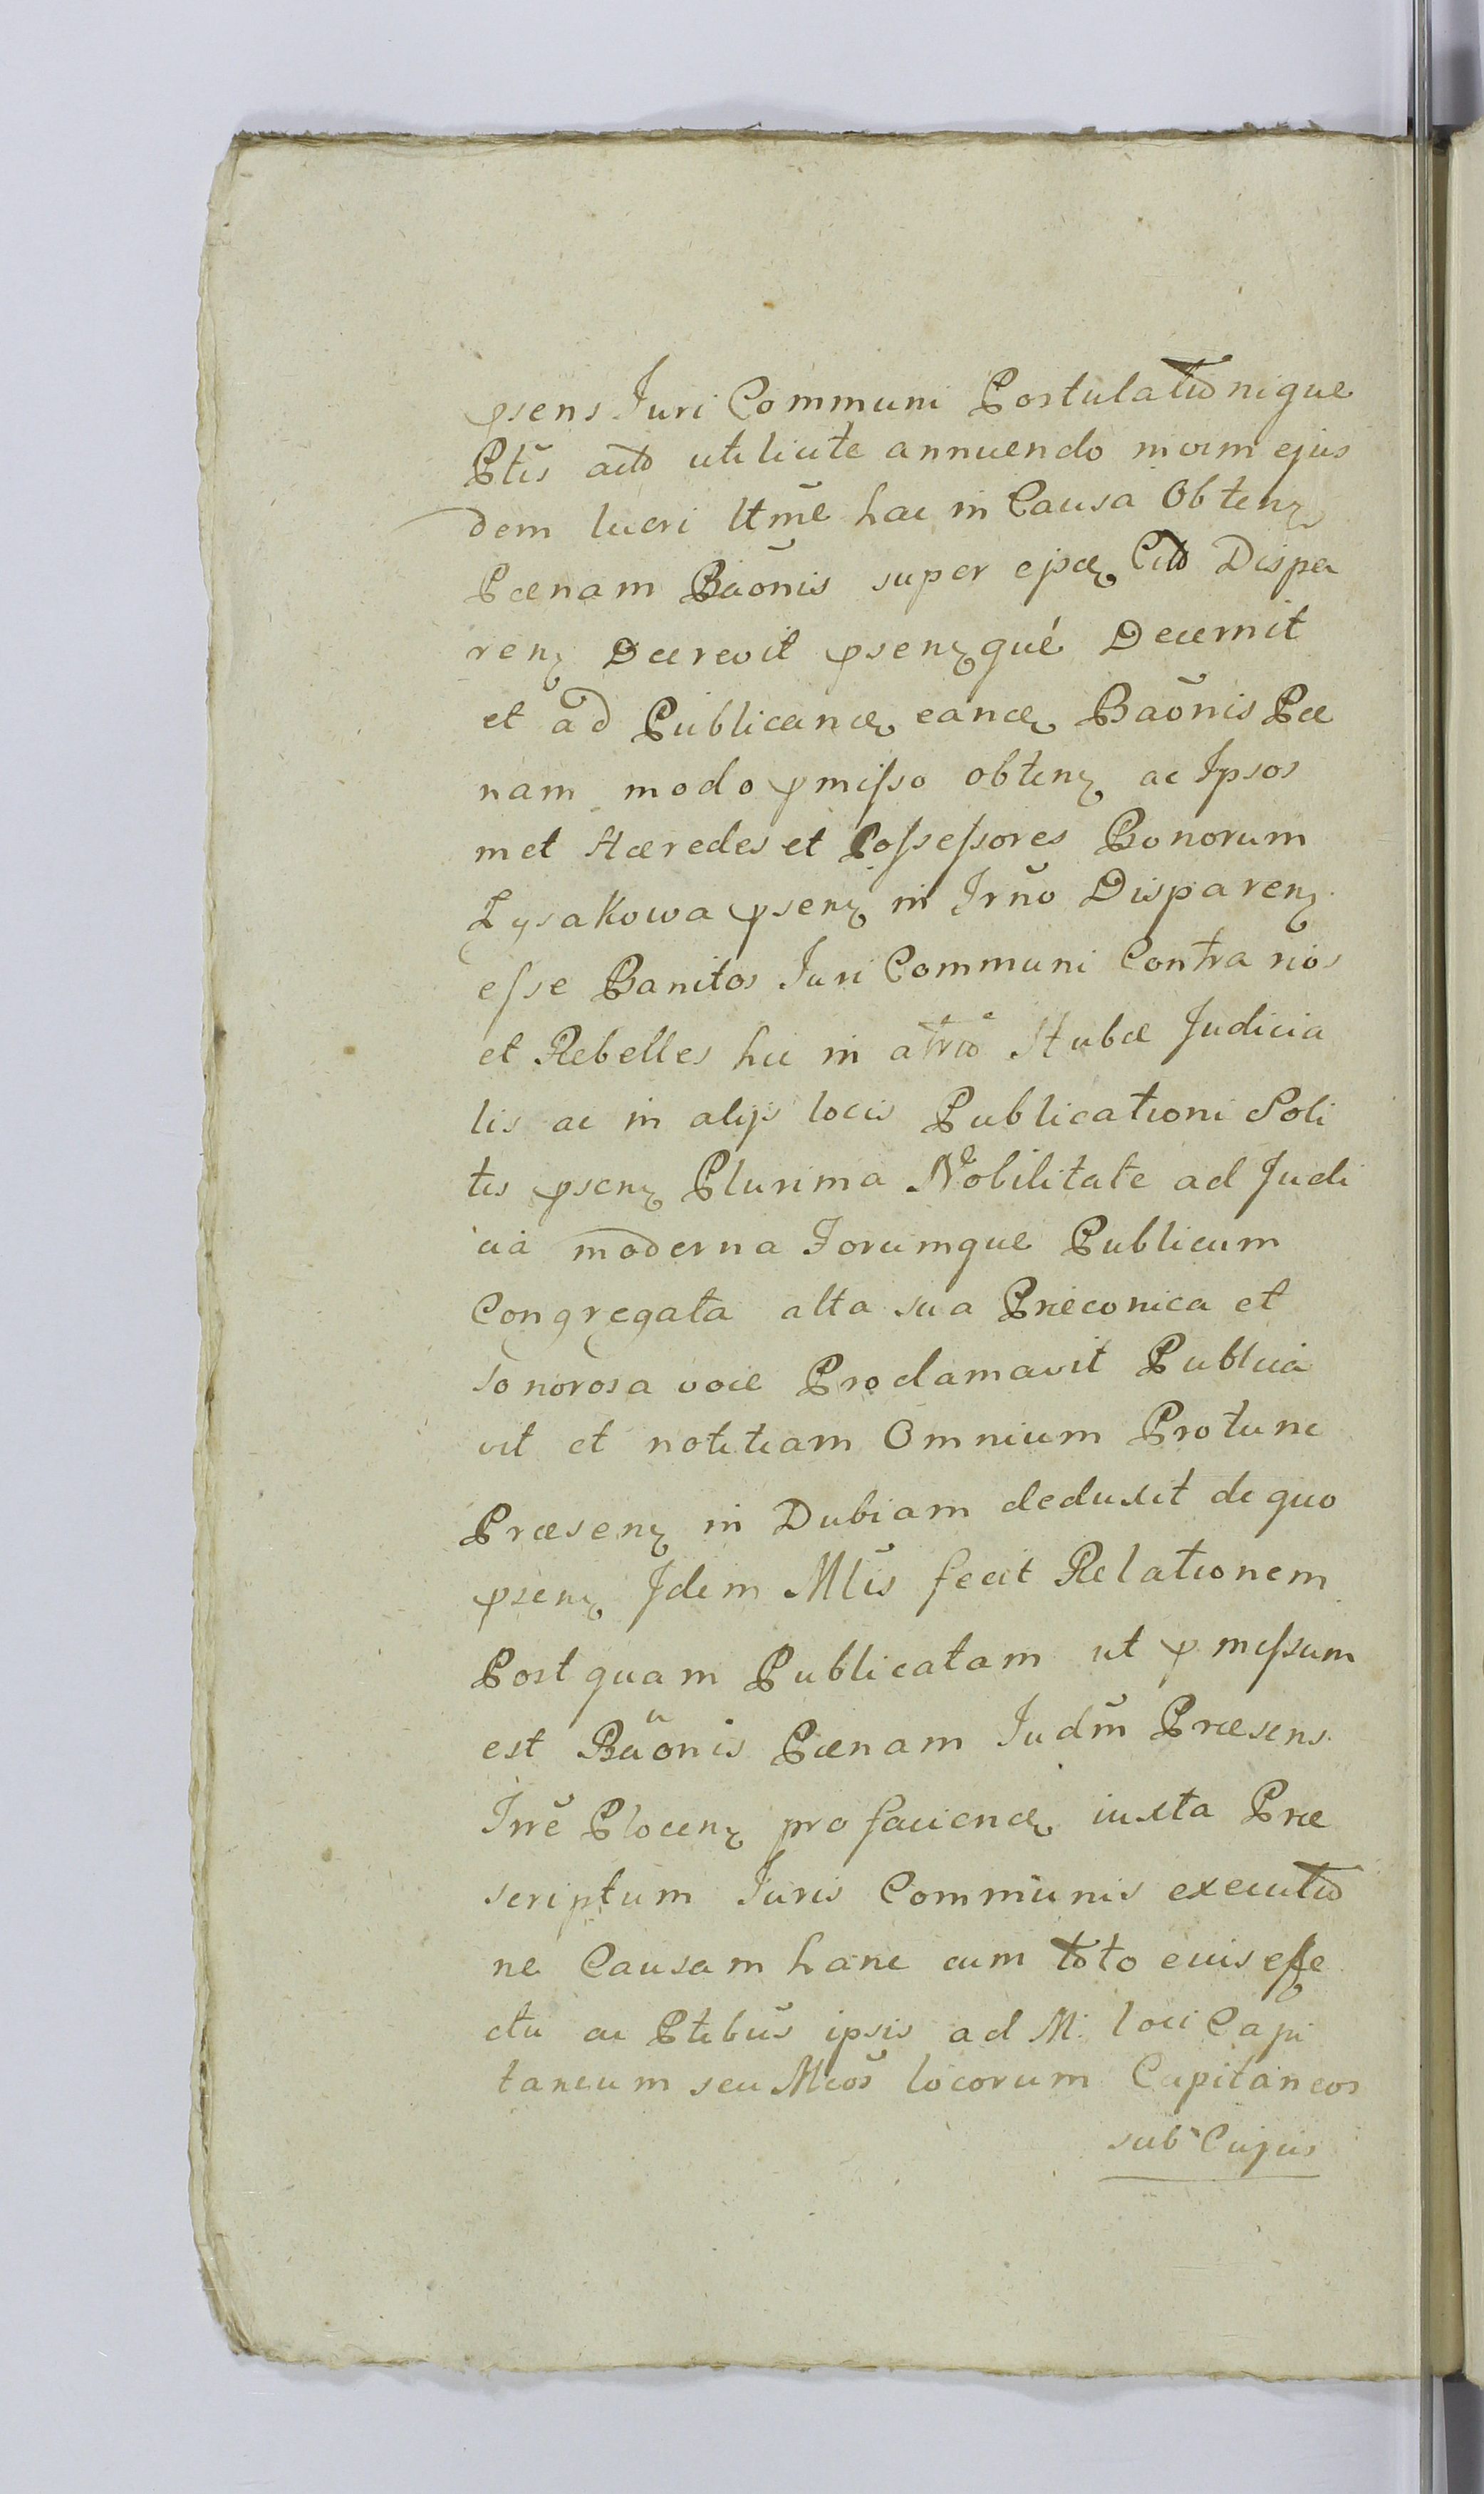 psens Juri Communi Postulationique
Ptis acto uti licite annuendo in vim ejus
dem lucri Itme hac in Causa Obtenz
Pœnam Bãonis super epdz Cito Dispa
renz Decrevit psenzqué Decernit
et ad Publicandz eandz Bãonis Pœ
nam modo pmisso obtenz ac Ipsos
met Hæredes et Possessores Bonorum
Łysakowa psenz in Irno Disparenz
esse Banitos Juri Communi Contrarios
et Rebelles hic in atrio Stubæ Judicia
lis ac in alijs locis Publicationi Soli
tis psenz Plurima Nobilitate ad Judi
cia moderna Forumque Publicum
Congregata alta sua Præconica et
sonorosa voce Proclamavit Publica
vit et notitiam Omnium Protunc
Præsenz in Dubiam deduxit de quo
psenz Idem Mlis fecit Relationem
Postquam Publicatam ut pmissum
est Bãonis Pœnam Judm Præsens
Irre Plocenz pro faciendz iuxta Præ
scriptum Juris Communis executio
ne Causam hanc cum toto eius effe
ctu ac Ptibus ipsis ad M. loci Capi
taneum seu Mcos locorum Capitaneos
sub Cujus